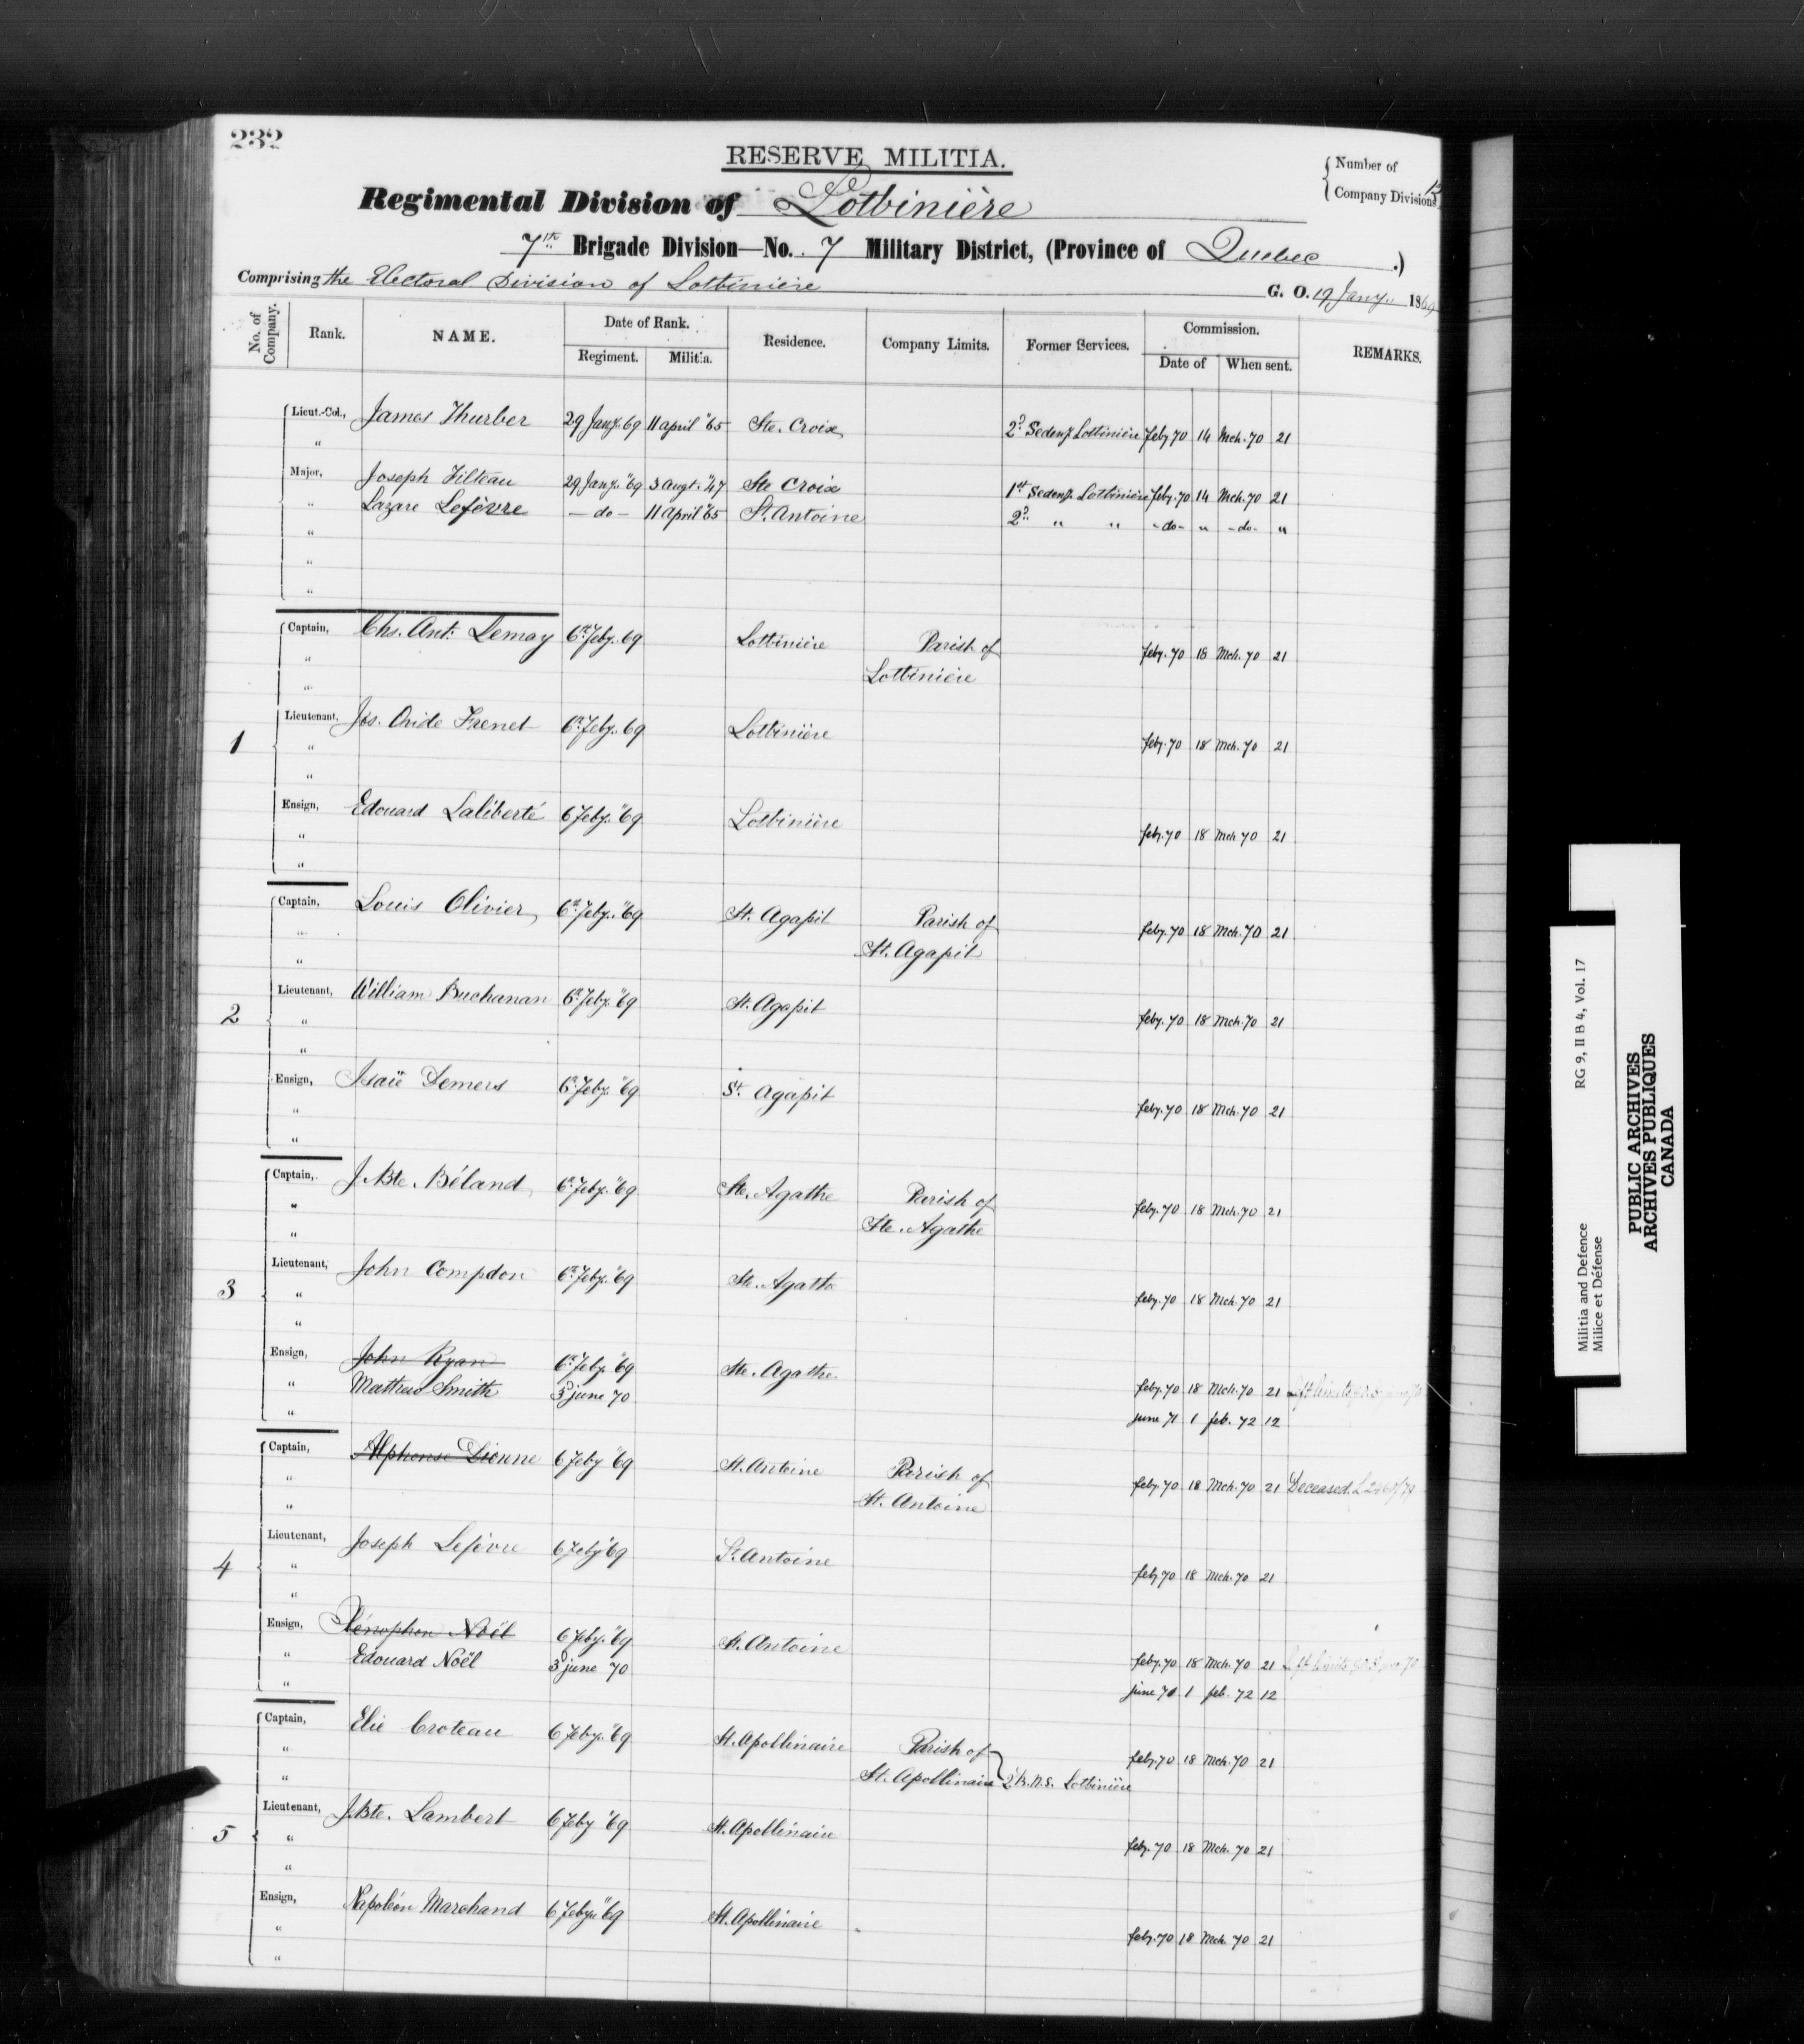 232
RESERVE MILITIA.
Number of
Company Divisions 13
Regimental Division of Lotbinière
7th Brigade Division—No. 7 Military District, (Province of Quebec.)
Comprising the Electoral Division of Lotbinière G. O. 19 Jany. 1869
No. of Company. Rank. NAME. Date of Rank. Residence. Company Limits. Former Services. Commission. REMARKS.
Regiment. Militia. Date of When sent.
Lieut.-Col., James Thurber 29 Jany. 69 11 april "65 Ste. Croix 2d Sedenty Lotbinière feby 70 14 Mch. 70 21
"
Major, Joseph Filteau 29 Jany. "69 3 augt. "47 Ste Croix 1st Sedenty Lotbinière feby. 70 14 Mch. 70 21
" Lazare Lefèvre — do — 11 April "65 St. Antoine 2d " " - do - " - do - "
"
"
"
Captain, Chs. Ant. Lemay 6th Feby. 69 Lotbinière Parish of feby. 70 18 Mch. 70 21
" Lotbinière
"
1 Lieutenant, Jos. Ovide Frenet 6th Feby. 69 Lotbinière feby. 70 18 Mch. 70 21
"
"
Ensign, Edouard Laliberté 6 Feby. "69 Lotbinière feby. 70 18 Mch 70 21
"
"
Captain, Louis Olivier 6th Feby. "69 St. Agapit Parish of feby. 70 18 Mch. 70 21
" St. Agapit
"
2 Lieutenant, William Buchanan 6th Feby. "69 St. Agapit feby. 70 18 Mch. 70 21
"
"
Ensign, Isaïe Demers 6th Feby. "69 St. Agapit feby. 70 18 Mch. 70 21
"
"
Captain, J. Bte. Béland 6th Feby. "69 Ste. Agathe Parish of feby. 70 18 Mch. 70 21
" Ste. Agathe
"
3 Lieutenant, John Compdon 6th Feby. "69 Ste. Agathe feby. 70 18 Mch. 70 21
"
"
Ensign, John Ryan 6th Feby. "69 Ste. Agathe feby. 70 18 Mch. 70 21 Left limits
" Mathew Smith 3d june 70 june 71 1 feb. 72 12
"
Captain, Alphonse Dionne 6 Feby "69 St. Antoine Parish of feby. 70 18 Mch. 70 21 Deceased.
" St. Antoine
"
4 Lieutenant, Joseph Lefèvre 6 Feby "69 St. Antoine feby 70 18 Mch. 70 21
"
"
Ensign, Xénophon Noël 6 Feby. "69 St. Antoine feby. 70 18 Mch. 70 21 Left limits
" Edouard Noël 3d june 70 june 71 1 feb. 72 12
"
Captain, Elie Croteau 6 Feby. "69 St. Apollinaire Parish of feby. 70 18 Mch. 70 21
" St. Apollinaire 2d B.N.S. Lotbinière
"
5 Lieutenant, J. Bte. Lambert 6 Feby "69 St. Apollinaire feby. 70 18 Mch. 70 21
"
"
Ensign, Napoléon Marchand 6 Feby. "69 St. Apollinaire feby. 70 18 Mch. 70 21
"
"
RG 9, II B 4, Vol. 17
Militia and Defence
Milice et Défense
PUBLIC ARCHIVES
ARCHIVES PUBLIQUES
CANADA